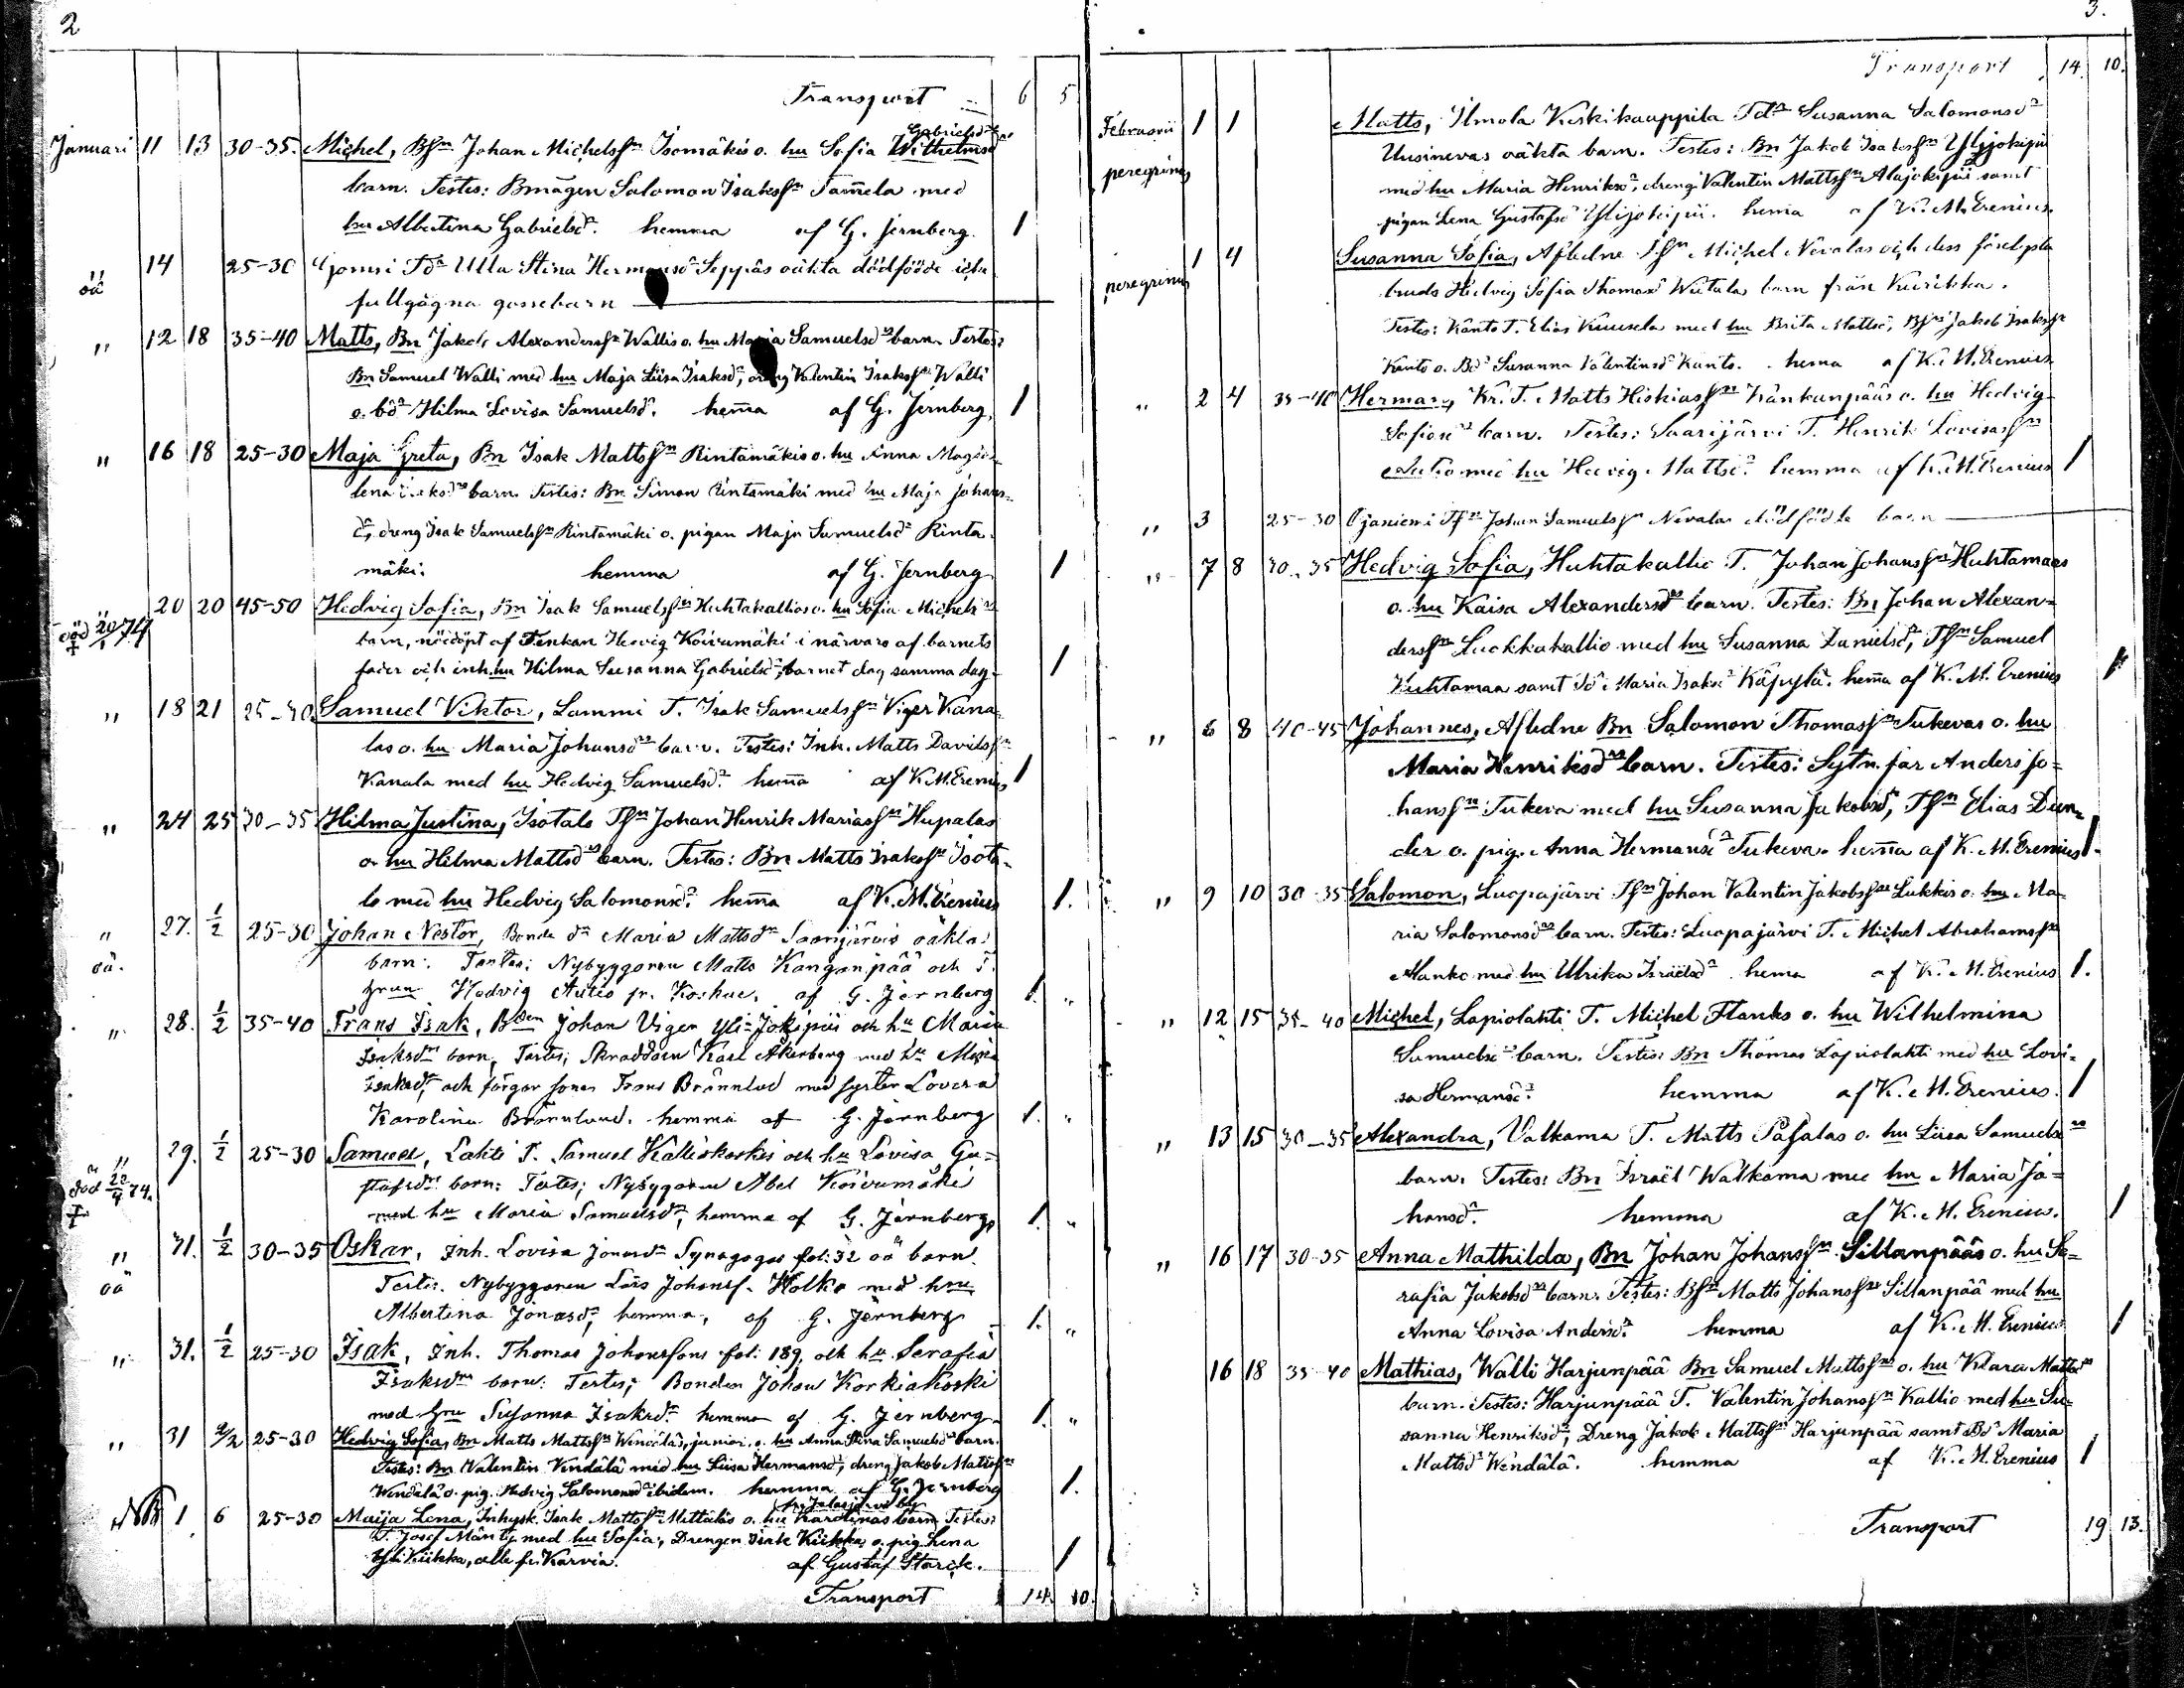 2
Transport 6 5
Januari 11 13 30-35. Michel, Bsn Johan Michelssn Isomäkis o. hu Sofia Wilhelmsd Gabrielsdrs
barn. Testes: Bmågen Salomon Isakssn Tam̄ela med
hu Albertina Gabrielsdr. hemma af G. Jernberg. 1
" 14 25-30 Tdr Ulla Stina Hermansdr Seppäs oäkta dödfödde icke
oä fullgågna gossebarn
" 12 18 35-40 Matts, Bn Jakob Alexanderssn Wallis o. hu Maria Samuelsdrs barn. Testes:
Bn Samuel Walli med hu Maja Liisa Isaksdr, dreng Valentin Isakssn Walli
o. bdr Hilma Lovisa Samuelsdr. hem̄a af G. Jernberg. 1
" 16 18 25-30 Maja Greta, Bn Isak Mattssn Rintamäkis o. hu Anna Magda-
lena Isaksdrs barn. Testes: Bn Simon Rintamäki med hu Maja Johans-
dr, dreng Isak Samuelssn Rintamäki o. pigan Maja Samuelsdr Rinta-
mäki. hemma af G. Jernberg 1
" 20 20 45-50 Hedvig Sofia, Bn Isak Samuelssn Huhtakallios o. hu Sofia Michelsdrs
död 20/1 74 barn, nöddöpt af Enkan Hedvig Koivumäki i närvaro af barnets
fader och inh.hu Hilma Susanna Gabrielsdr, barnet dog samma dag. 1
" 18 21 25-30 Samuel Viktor, Lammi T. Isak Samuelssn Viger Kana-
las o. hu Maria Johansdrs barn. Testes: Inh. Matts Davidssn
Kanala med hu Hedvig Samuelsdr. hem̄a af K. M. Erenius 1
" 24 25 30-35 Hilma Justina, Isotalo Tsn Johan Henrik Mariassn Hupalas
o. hu Hilma Mattsdrs barn. Testes: Bn Matts Isakssn Isota-
lo med hu Hedvig Salomonsdr. hem̄a af K. M. Erenius 1.
" 27. 1/2 25-30 Johan Nestor, Bonde dr Maria Mattsdr Saarijärvis oäkta
oä. barn. Testes: Nybyggaren Matts Kanganpää och T.
hrun Hedvig Autio fr. Koskue. af G. Jernberg 1. "
" 28. 1/2 35-40 Frans Isak, Bden Johan Viger Yli-Jokipii och hu Maria
Isaksdrs barn, Testes; Skräddaren Karl Åkerberg med hu Maja
Isaksdr, och färgar sonen Frans Brännlund med syster Lovisa
Karolina Brännlund. hemma af G. Jernberg 1. "
" 29. 1/2 25-30 Samuel, Lahti T. Samuel Kalliokoskis och hu Lovisa Gu-
död 22/4 74. stafsdrs barn: Testes; Nybyggaren Abel Koivumäki
med hu Maria Samuelsdr, hemma af G. Jernberg, 1. "
" 31. 1/2 30-35 Oskar, Inh. Lovisa Jonasdr Synagogas fol: 32 oä barn.
oä Testes. Nybyggaren Lars Johanss. Holko med hru
Albertina Jonasdr, hemma, af G. Jernberg 1. "
" 31. 1/2 25-30 Isak, Inh. Thomas Johanssons fol: 189, och hu Serafia
Isaksdrs barn: Testes; Bonden Johan Korkiakoski
med hru Susanna Isaksdr. hemma af G. Jernberg. 1. "
" 31 2/2 25-30 Hedvig Sofia, Bn Matts Mattssn Wendäläs, junior. o. hu Anna Stina Samuelsdrs barn.
Testes: Bn Valentin Vendälä med hu Liisa Hermansdr, dreng Jakob Mattssn
Wendälä o. pig. Hedvig Salomonsdr ibidem. hemma af G. Jernberg 1.
fr. Jalasjärvi by
NB 1 6 25-30 Maija Lena, Inhysk. Isak Mattssn Mettäläs o. hu Karolinas barn Testes:
T. Josef Mänty med hu Sofia, Drengen Isak Kiikka o. pig. Lena
Yli Kiikka, alla fr. Karvia. af Gustaf Starck. 1
Transport 14. 10.
3.
Transport 14. 10.
Februarii 1 1 Matts, Ilmola Keskikauppila Tdr Susanna Salomonsdr
peregrinus Uusinevas oäkta barn. Testes: Bn Jakob Isakssn Ylijokipii
med hu Maria Henriksdr, dreng Valentin Mattssn Alajokipii samt
pigan Lena Gustafsdr Ylijokipii. hem̄a af K. M. Erenius.
peregrinus 1 4 Susanna Sofia, Aflidne Tsn Michel Nevalas och dess förelofta
bruds Hedvig Sofia Thomasdr Wiitalas barn från Kurikka.
Testes: Känto T. Elias Kuusela med hu Brita Mattsdr, Bsn Jakob Isakssn
Känto o. Bdr Susanna Valentinsdr Känto. hem̄a af K. M. Erenius
" 2 4 35-40 Herman, Kr. T. Matts Hiskiassn Kränkunpääs o. hu Hedvig
Sofiasdrs barn. Testes: Saarijärvi T. Henrik Lovisassn
Autio med hu Hedvig Mattsdr. hemma af K. M. Erenius 1
" 3 25-30 Ojaniemi Tsn Johan Samuelssn Nevalas dödfödda barn
" 7 8 30-35 Hedvig Sofia, Huhtakallio T. Johan Johanssn Huhtamaas
o. hu Kaisa Alexandersdrs barn. Testes: Bn Johan Alexan-
derssn Luokkakallio med hu Susanna Danielsdr, Tsn Samuel
Huhtamaa samt Tdr Maria Isaksdr Käpylä. hem̄a af K. M. Erenius 1
" 6 8 40-45 Johannes, Aflidne Bn Salomon Thomassn Tukevas o. hu
Maria Henriksdrs barn. Testes: Sytn. far Anders Jo-
hanssn Tukeva med hu Susanna Jakobsdr, Tsn Elias Dun-
der o. pig. Anna Hermansdr Tukeva. hem̄a af K. M. Erenius 1.
" 9 10 30-35 Salomon, Luopajärvi Tsn Johan Valentin Jakobssn Lukkis o. hu Ma-
ria Salomonsdrs barn. Testes: Luopajärvi T. Michel Abrahamssn
Alanko med hu Ulrika Israelsdr hem̄a af K. M. Erenius 1.
" 12 15 35-40 Michel, Lapiolahti T. Michel Flanks o. hu Wilhelmina
Samuelsdrs barn. Testes: Bn Thomas Lapiolahti med hu Lovi-
sa Hermansdr. hemma af K. M. Erenius. 1
" 13 15 30-35 Alexandra, Valkama T. Matts Pasalas o. hu Liisa Samuelsdrs
barn. Testes: Bn Israël Walkama med hu Maria Jo-
hansdr. hemma af K. M. Erenius. 1
" 16 17 30-35 Anna Mathilda, Bn Johan Johanssn Sillanpääs o. hu Se-
rafia Jakobsdrs barn. Testes: Bsn Matts Johanssn Sillanpää med hu
Anna Lovisa Andersdr. hemma af K. M. Erenius 1
16 18 35-40 Mathias, Walli Harjunpää Bn Samuel Mattssns o. hu Klara Mattsdrs
barn. Testes: Harjunpää T. Valentin Johanssn Kallio med hu Su-
sanna Henriksdr, Dreng Jakob Mattssn Harjunpää samt Bdr Maria
Mattsdr Wendälä. hemma af K. M. Erenius 1
Transport 19 13.